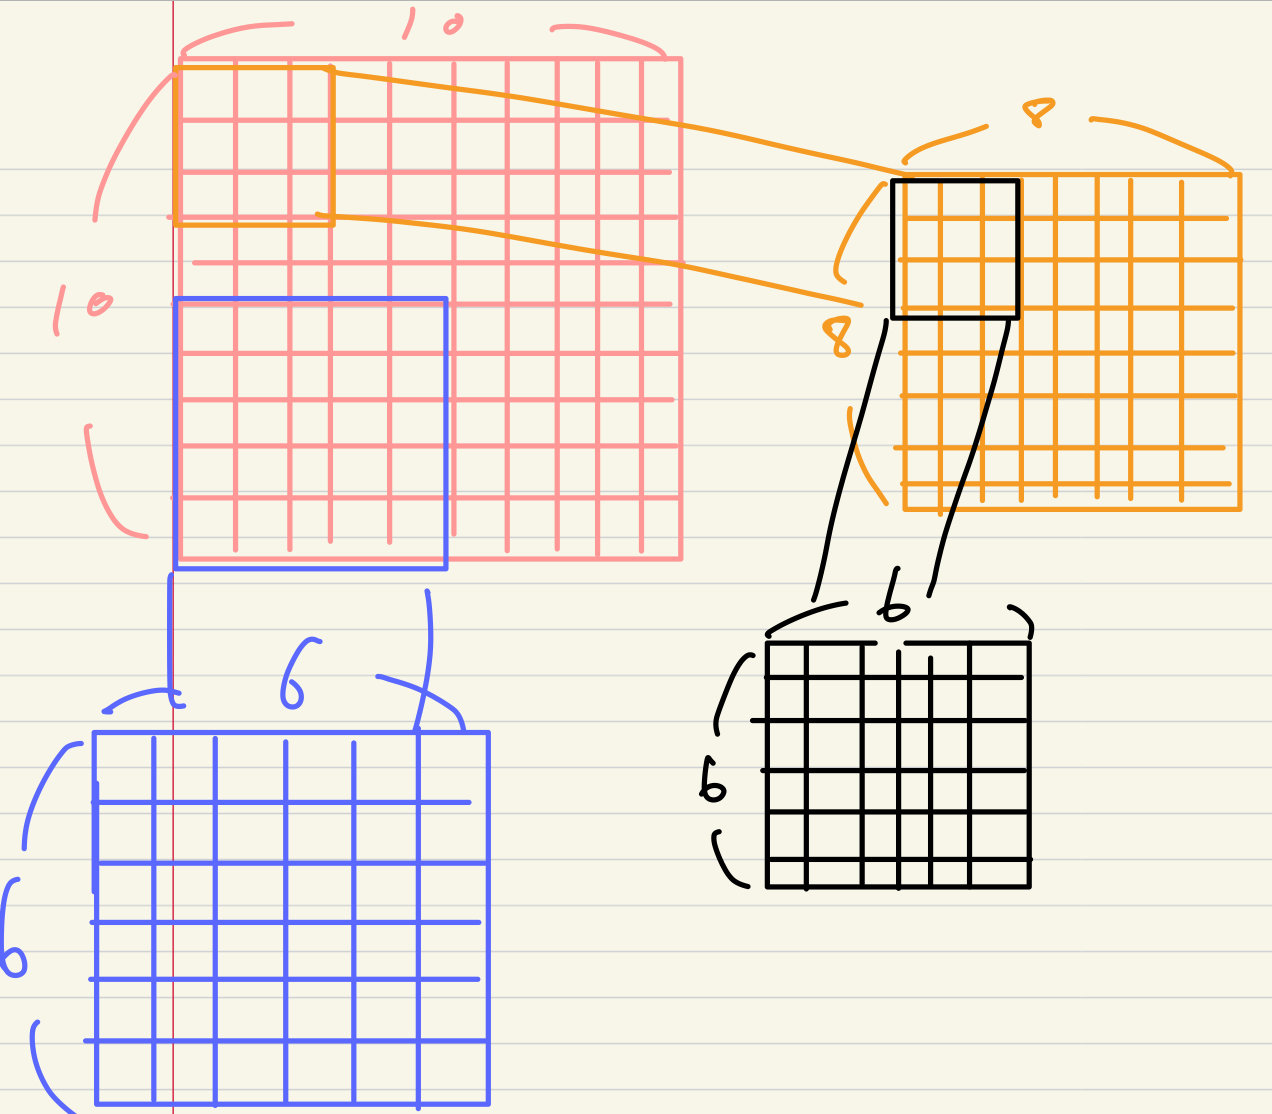 10
8
10
8
6
6
6
6